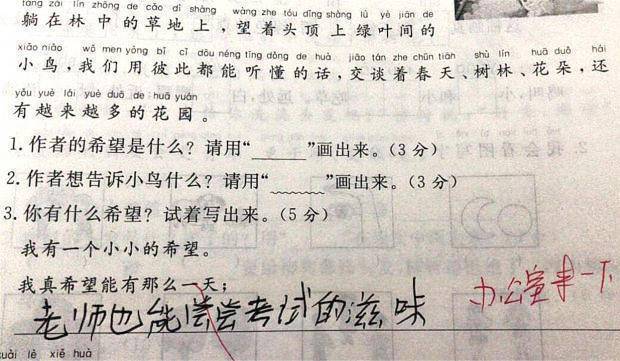 tǎng zài lín zhōng de cǎo dì shàng wàng zhe tóu dǐng shàng lǜ yè jiān de
躺在林中的草地上，望着头顶上绿叶间的
xiǎo niǎo wǒ men yòng bǐ cǐ dōu néng tīng dǒng de huà jiāo tán zhe chūn tiān shù lín huā duǒ hái
小鸟，我们用彼此都能听懂的话，交谈着春天、树林、花朵，还
yǒu yuè lái yuè duō de huā yuán
有越来越多的花园。
1.作者的希望是什么？请用“______”画出来。（3分）
2.作者想告诉小鸟什么？请用“______”画出来。（3分）
3.你有什么希望？试着写出来。（5分）
我有一个小小的希望。
我真希望能有那么一天；
老师也能尝尝考试的滋味
办公室来一下
kuài lè xiě huà